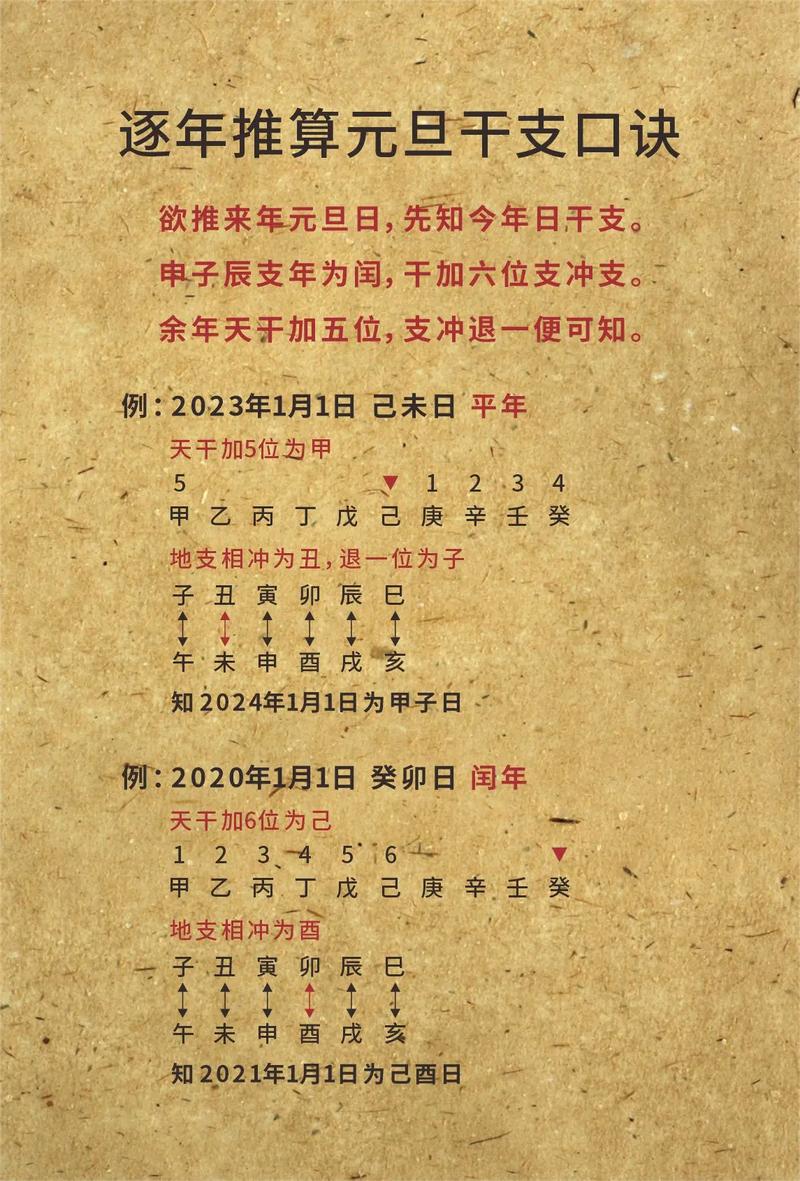 逐年推算元旦干支口诀
欲推来年元旦日，先知今年日干支。
申子辰支年为闰，干加六位支冲支。
余年天干加五位，支冲退一便可知。
例：2023年1月1日 己未日 平年
天干加5位为甲
5 ▼ 1 2 3 4
甲 乙 丙 丁 戊 己 庚 辛 壬 癸
地支相冲为丑，退一位为子
子 丑 寅 卯 辰 巳
午 未 申 酉 戌 亥
知2024年1月1日为甲子日
例：2020年1月1日 癸卯日 闰年
天干加6位为己
1 2 3 4 5 6 ▼
甲 乙 丙 丁 戊 己 庚 辛 壬 癸
地支相冲为酉
子 丑 寅 卯 辰 巳
午 未 申 酉 戌 亥
知2021年1月1日为己酉日